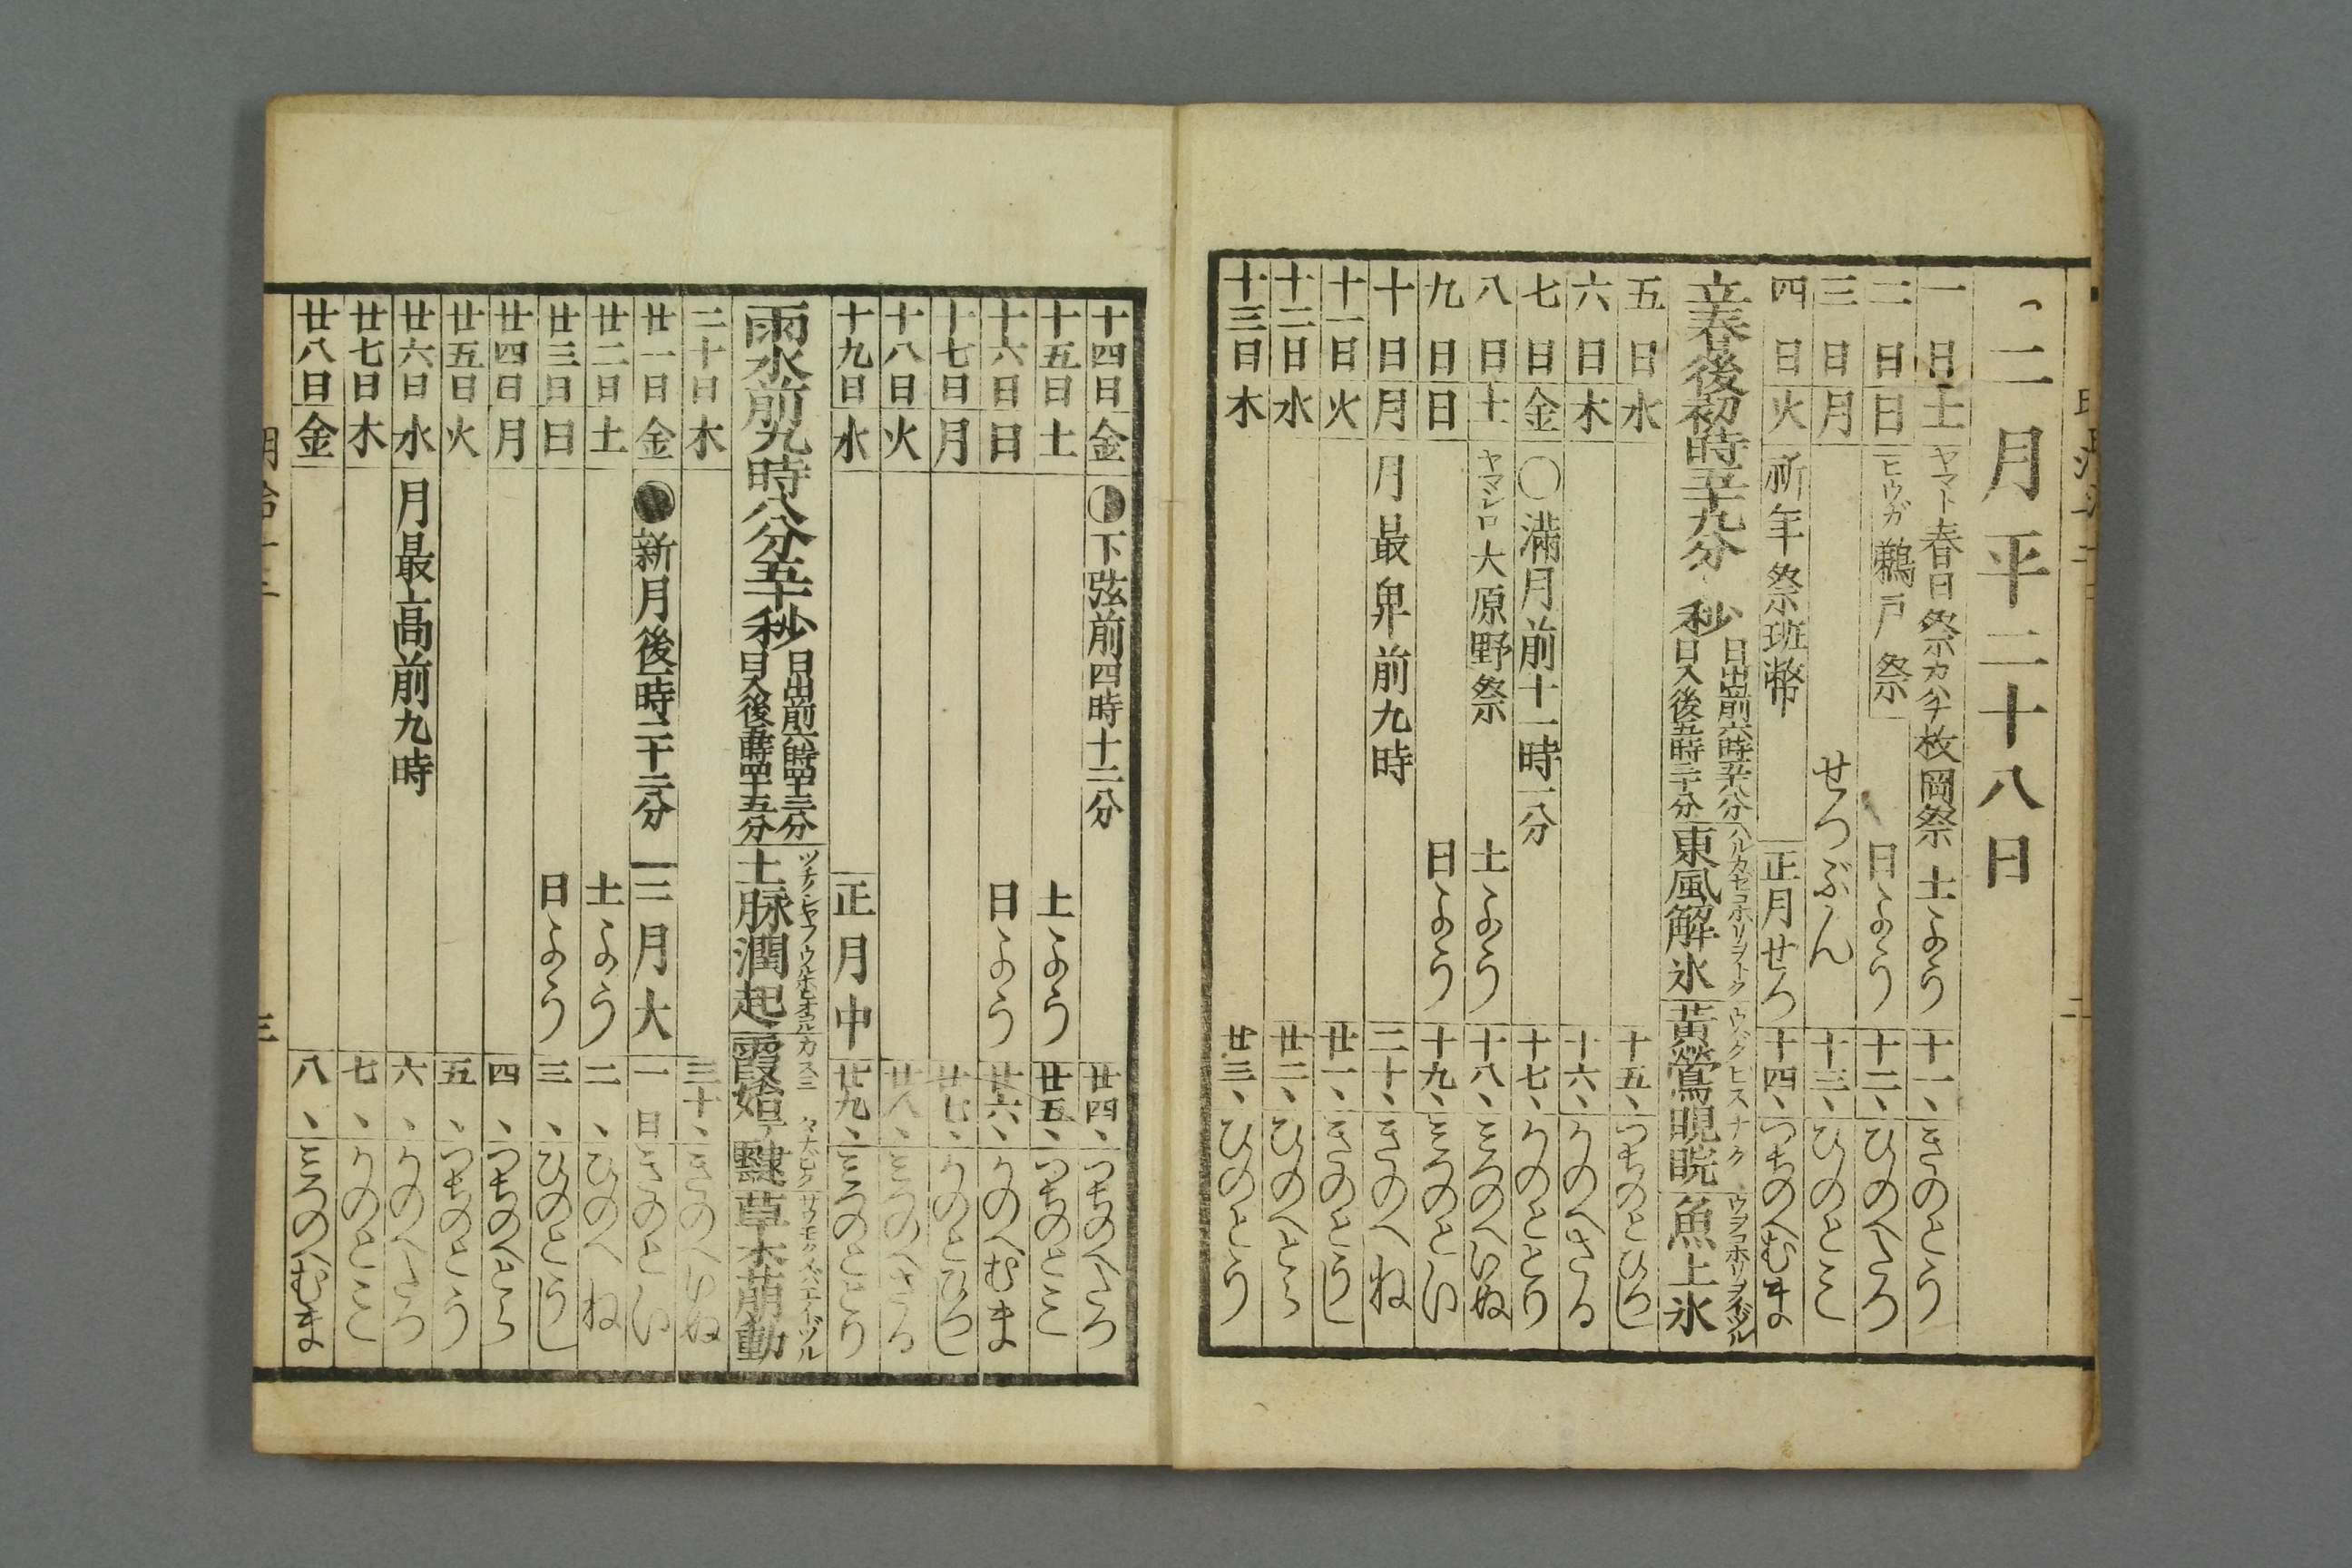 二月平二十八日
一日 土 ヤマト春日祭カハチ枚岡祭 土よう 十一、きのとう
二日 日 ヒウガ鵜戸祭 日よう 十二、ひのへたつ
三日 月 せつぶん 十三、ひのとミ
四日 火 祈年祭班幣 正月せつ 十四、つちのへむま
立春後初時五十九分 秒 日出前六時五十八分 日入後五時三十分 東風解氷 ハルカゼコホリヲトク 黃鶯睍睆 ウバグヒスナク 魚上氷 ウヲコホリヲイヅル
五日 水 十五、つちのとひつし
六日 木 十六、かのへさる
七日 金 ○満月前十一時一分 十七、かのととり
八日 土 ヤマシロ大原野祭 土よう 十八、ミつのへいぬ
九日 日 日よう 十九、ミつのとい
十日 月 月最卑前九時 二十、きのへね
十一日 火 廿一、きのとうし
十二日 水 廿二、ひのへとら
十三日 木 廿三、ひのとう
十四日 金 下弦前四時十二分 廿四、つちのへたつ
十五日 土 土よう 廿五、つちのとミ
十六日 日 日よう 廿六、かのへむま
十七日 月 廿七、かのとひつし
十八日 火 廿八、ミつのへさる
十九日 水 正月中 廿九、ミつのととり
雨水前九時八分五十秒 日出前六時四十三分 日入後五時四十五分 土脉潤起 霞始靆 カスミ タナビク 草木萠動 サウモクメバエイヅル
二十日 木 三十、きのへいぬ
廿一日 金 新月後一時二十二分 二月大 一日きのとい
廿二日 土 土よう 二、ひのへね
廿三日 日 日よう 三、ひのとうし
廿四日 月 四、つちのへとら
廿五日 火 五、つちのとう
廿六日 水 月最高前九時 六、かのへたつ
廿七日 木 七、かのとミ
廿八日 金 八、ミつのへむま
三